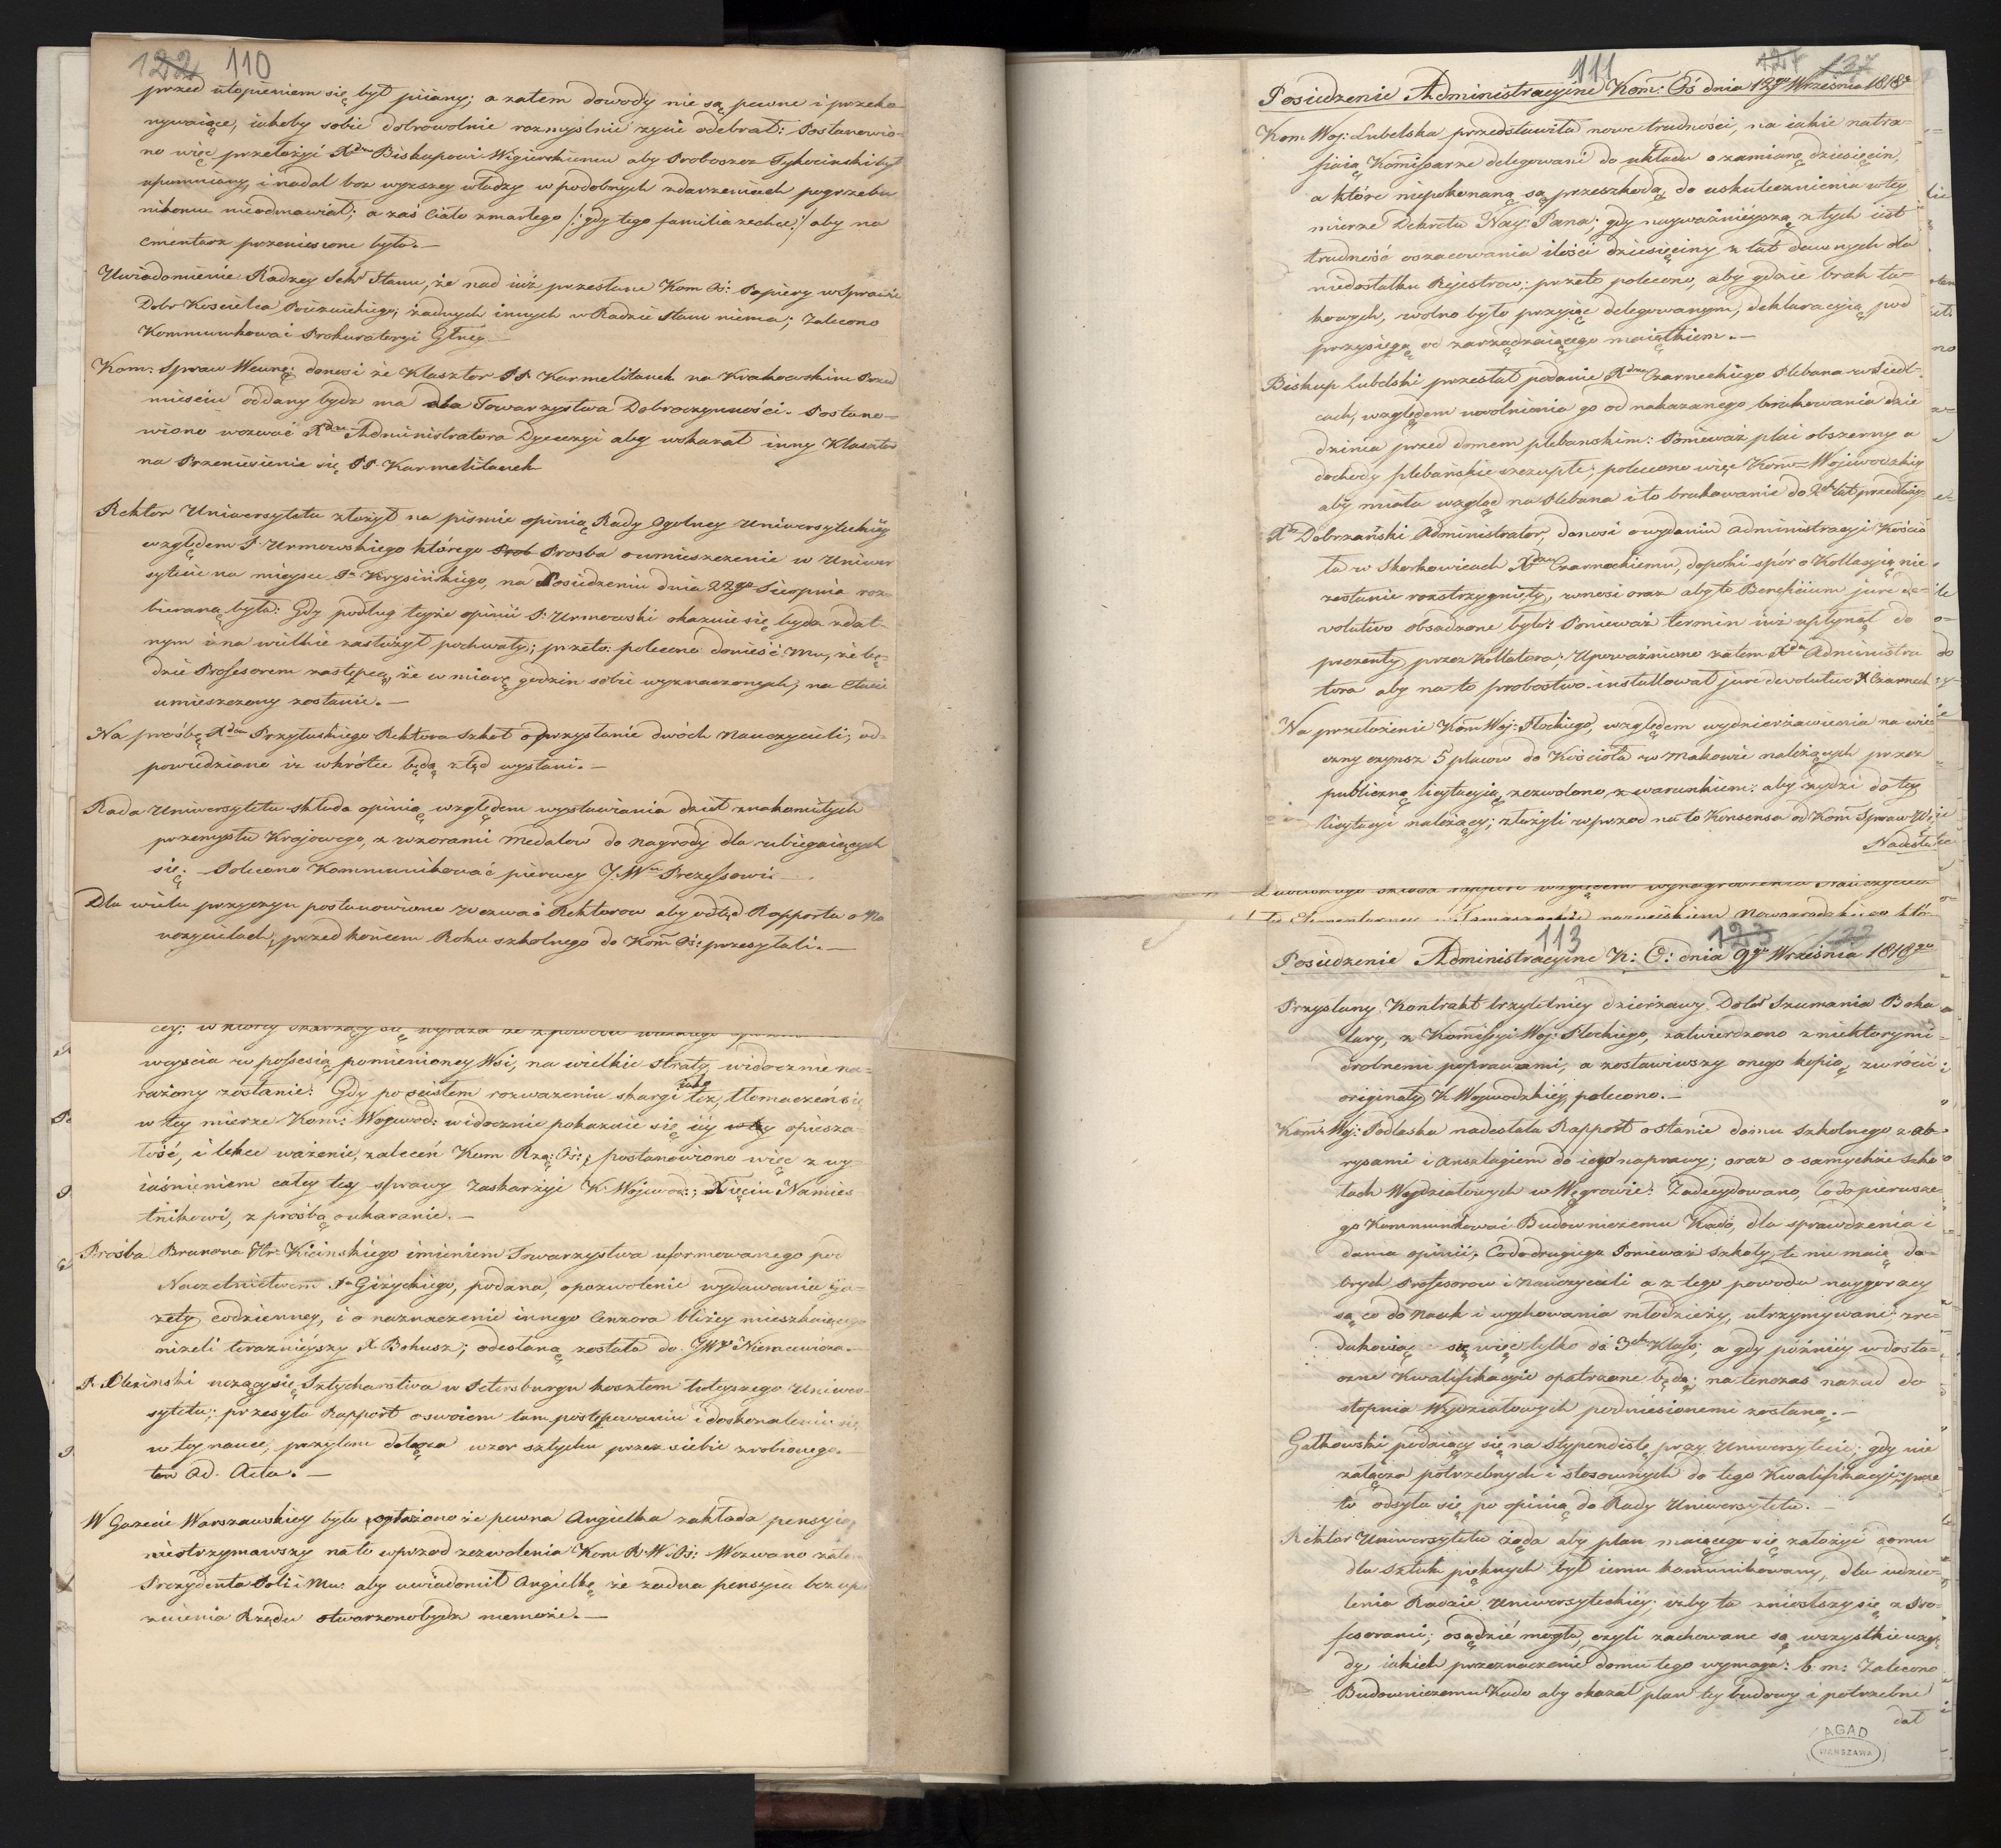 122 110
przed utopieniem się był pijany; a zatem dowody nie są pewne i przeko-
nywaiące, iakoby sobie dobrowolnie rozmyślnie życie odebrał: Postanowio-
no więc przełożyć Xdzu Biskupowi Wigierskiemu aby Proboszcz Tykocinski był
upomniany, i nadal bez wyzszey władzy w podobnych zdarzeniach pogrzebu
nikomu nieodmawiał; a zaś Ciało zmarłego /: gdy tego familia zechce :/ aby na
cmentarz przeniesione było. —
Uwiadomienie Radzcy Sekr Stanu, że nad iuż przesłane Kom Oś: Papiery w Sprawie
Dobr Kościelca żadnych innych w Radzie Stanu niema; Zalecono
Kommunikować Prokuratoryi Głney —
Kom: Spraw Wewnę: donosi że Klasztor PP Karmelitanek na Krakowskim Przed
mieściu oddany bydz ma dla Towarzystwa Dobroczynności. Postano-
wiono wezwać Xdza Administratora Dyecezyi aby wskazał inny Klasztor
na Przeniesienie się PP Karmelitanek
Rektor Uniwersytetu złożył na piśmie opinią Rady Ogolney Uniwersyteckiey
względem P. Urmowskiego którego Prosba o umieszczenie w Uniwer
sytecie na mieyscu Pa Krysińskiego, na Posiedzeniu dnia 22go Sierpnia roz-
bieraną była: Gdy podług teyże opinii P. Urmowski okazuie się bydz zdat-
nym i na wielkie zasłużył pochwały; przeto polecono donieść Mu, że bę-
dzie Profesorem zastępcą, że w miarę godzin sobie wyznaczonych, na Etacie
umieszczony zostanie. —
Na prośbę Xdza Przyłuskiego Rektora Szkoł o przysłanie dwóch Nauczycieli; od-
powiedziano iż wkrótce będą ztąd wysłani. —
Rada Uniwersytetu składa opinią względem wystawiania dzieł znakomitych
przemysłu Krajowego, z wzorami medalow do nagrody dla ubiegaiących
się. Polecono Kommunikować pierwey J. Wu Prezessowi —
Dla wielu przyczyn postanowiono wezwać Rektorow aby odtąd Rapporta o Na
uczycielach, przed końcem Roku szkolnego do Kom Oś: przesyłali. —
weyscia w possesią pomienioney Wsi, na wielkie straty widocznie na-
rażony zostanie: Gdy po scisłem rozważeniu skargi tey, iako też tłomaczeń się
w tey mierze Kom: Wojewod: widocznie pokazuie się iey opiesza-
łość, i lekce ważenie, zaleceń Kom Rzą: Oś:; postanowiono więc z wy-
iaśnieniem całey tey sprawy Zaskarżyć K. Wojewod:; Xięciu Namies-
tnikowi, z prośbą o ukaranie. —
Prosba Brunona Hr: Kicinskiego imieniem Towarzystwa uformowanego pod
Naczelnictwem Pa Giżyckiego, podana, o pozwolenie wydawania Ga-
zety codzienney, i o naznaczenie innego Cenzora bliżey mieszkaiącego
niżeli teraznieyszy X Bohusz; odesłaną została do JWP Niemcewicza. —
P. Oleszinski uczący się Sztycharstwa w Petersburgu kosztem tuteyszego Uniwer-
sytetu; przesyła Rapport o swoiem tam postępowaniu i doskonaleniu się
w tey nauce, przytem dołącza wzor sztychu przez siebie zrobionego. —
ten Ad. Acta. —
W Gazecie Warszawskiey było ogłoszono że pewna Angielka zakłada pensyią
nieotrzymawszy na to wprzod zezwolenia Kom R. W. Oś: Wezwano zatem
Prezydenta Poli i Mu: aby uwiadomił Angielkę że żadna pensyia bez upo
znienia Rządu otwarzono bydz niemoże. —
111 124 137
Posiedzenie Administracyjne Kom: Oś dnia 12go Września 1818r
Kom Woj: Lubelska przedstawiła nowe trudności, na iakie natra-
fiaią Kommissarze delegowani do układu o zamianę dziesięcin,
a które niepokonaną są przeszkodą do uskutecznienia w tey
mierze Dekretu Nay: Pana; gdy nayważnieyszą z tych iest
trudność oszacowania ilości dziesięciny z lat dawnych dla
niedostatku Rejestrow: przeto polecono, aby gdzie brak ta-
kowych, wolno było przyiąć delegowanym, deklaracyią pod
przysięgą od zarządzaiącego maiątkiem. —
Biskup Lubelski przesłał podanie Xdza Czarneckiego Plebana w Siedl-
cach, względem uwolnienia go od nakazanego brukowania dzie
dzinca przed domem plebanskim: Ponieważ plac obszerny a
dochody plebańskie szczupłe; polecono więc Kom Wojewodzkiey
aby miała wzgląd na Plebana i to brukowanie do 2ch lat przedłuży
Xdz Dobrzański Administrator, donosi o wydaniu administracyi Kościo
ła w Skorkowicach Xdzu Czarnockiemu, dopoki spór o Kollacyią nie
zostanie rozstrzygnięty, wnosi oraz aby to Beneficium jure de-
volutivo obsadzone było: Ponieważ termin iuż upłynął do
prezenty przez Kollatora; Upoważniono zatem Xdza Administra
tora aby na to probostwo installował jure devolutivo X Czarnock
Na przełożenie Kom Woj: Płockiego, względem wydzierżawienia na wie
czny czynsz 5 placow do Kościoła w Makowie należących przez
publiczną licytacyią, zezwolono, z warunkiem: aby żydzi do tey
licytacyi należący; złożyli wprzod na to Konsensa od Kom Spraw W:
Nadesła
113 123 133
Posiedzenie Administracyjne K: O: dnia 9go Września 1818go
Przysłany Kontrakt trzyletniey dzierżawy Dobr Szumania Boha
tary, z Kommissyi Woj: Płockiego, zatwierdzono z niektorymi
drobnemi poprawami, a zostawiwszy onego kopią, zwrócić
originały K. Wojewodzkiey polecono. —
Kom: Woj: Podlaska nadesłała Rapport o stanie domu szkolnego z ab-
rysami i Anszlagiem do iego naprawy; oraz o samychże Szko
łach Wydziałowych w Węgrowie: Zadecydowano, Co do pierwsze-
go Kommunikować Budowniczemu Kado, dla sprawdzenia i
dania opinii; Co do drugiego Ponieważ szkoły te nie maią do-
brych Profesorow i Nauczycieli a z tego powodu naygorzey
są co do Nauk i wychowania młodzieży, utrzymywane; zre-
dukować się więc tylko do 3ch Klass, a gdy pózniey w dosta-
czne Kwalifikacyie opatrzone będą; na tenczas nazad do
stopnia Wydziałowych podniesionemi zostaną. —
Gatkowski podaiący się na stypendistę przy Uniwersytecie; gdy nie
załącza potrzebnych i stosownych do tego Kwalifikacyi; prze
to odsyła się po opinią do Rady Uniwersytetu. —
Rektor Uniwersytetu żąda aby plan maiącego się założyć domu
dla sztuk pięknych był iemu kommunikowany, dla udzie-
lenia Radzie Uniwersyteckiey; iżby ta zniosłszy się z Pro-
fesorami; osądzić mogła, czyli zachowane są wszystkie wzglę
dy, iakich przeznaczenie domu tego wymaga: b. m: Zalecono
Budowniczemu Kado aby okazał plan tey budowy i potrzebne
dał
AGAD
WARSZAWA